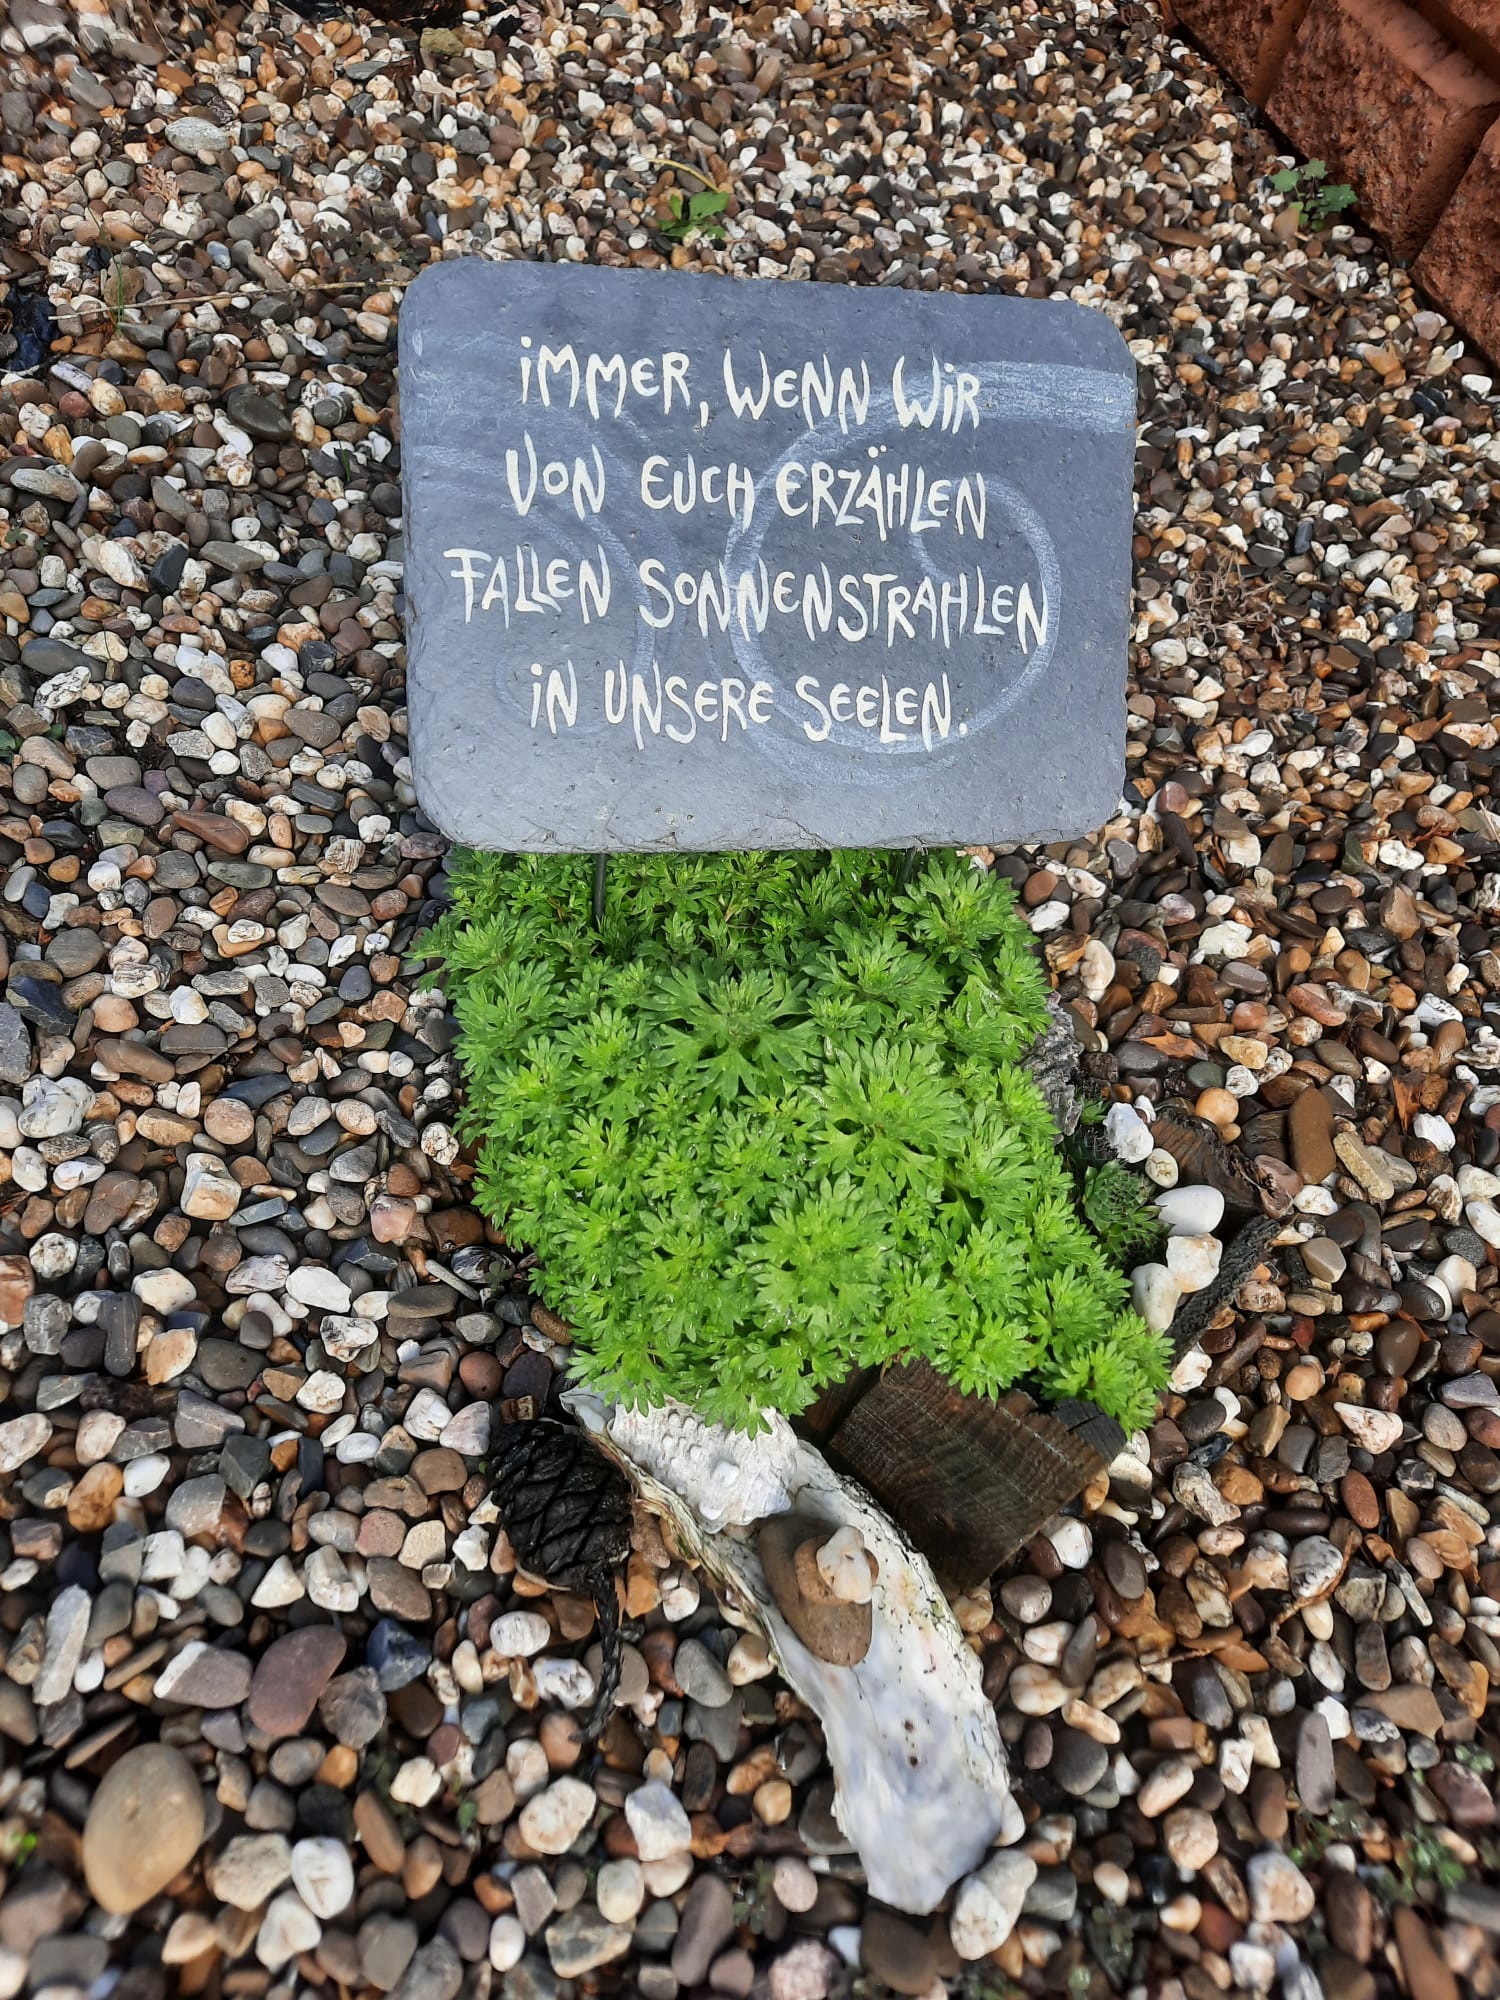 iMMER, WENN WiR
VON EUCH ERZÄHLEN
FALLEN SONNENSTRAHLEN
iN UNSERE SEELEN.